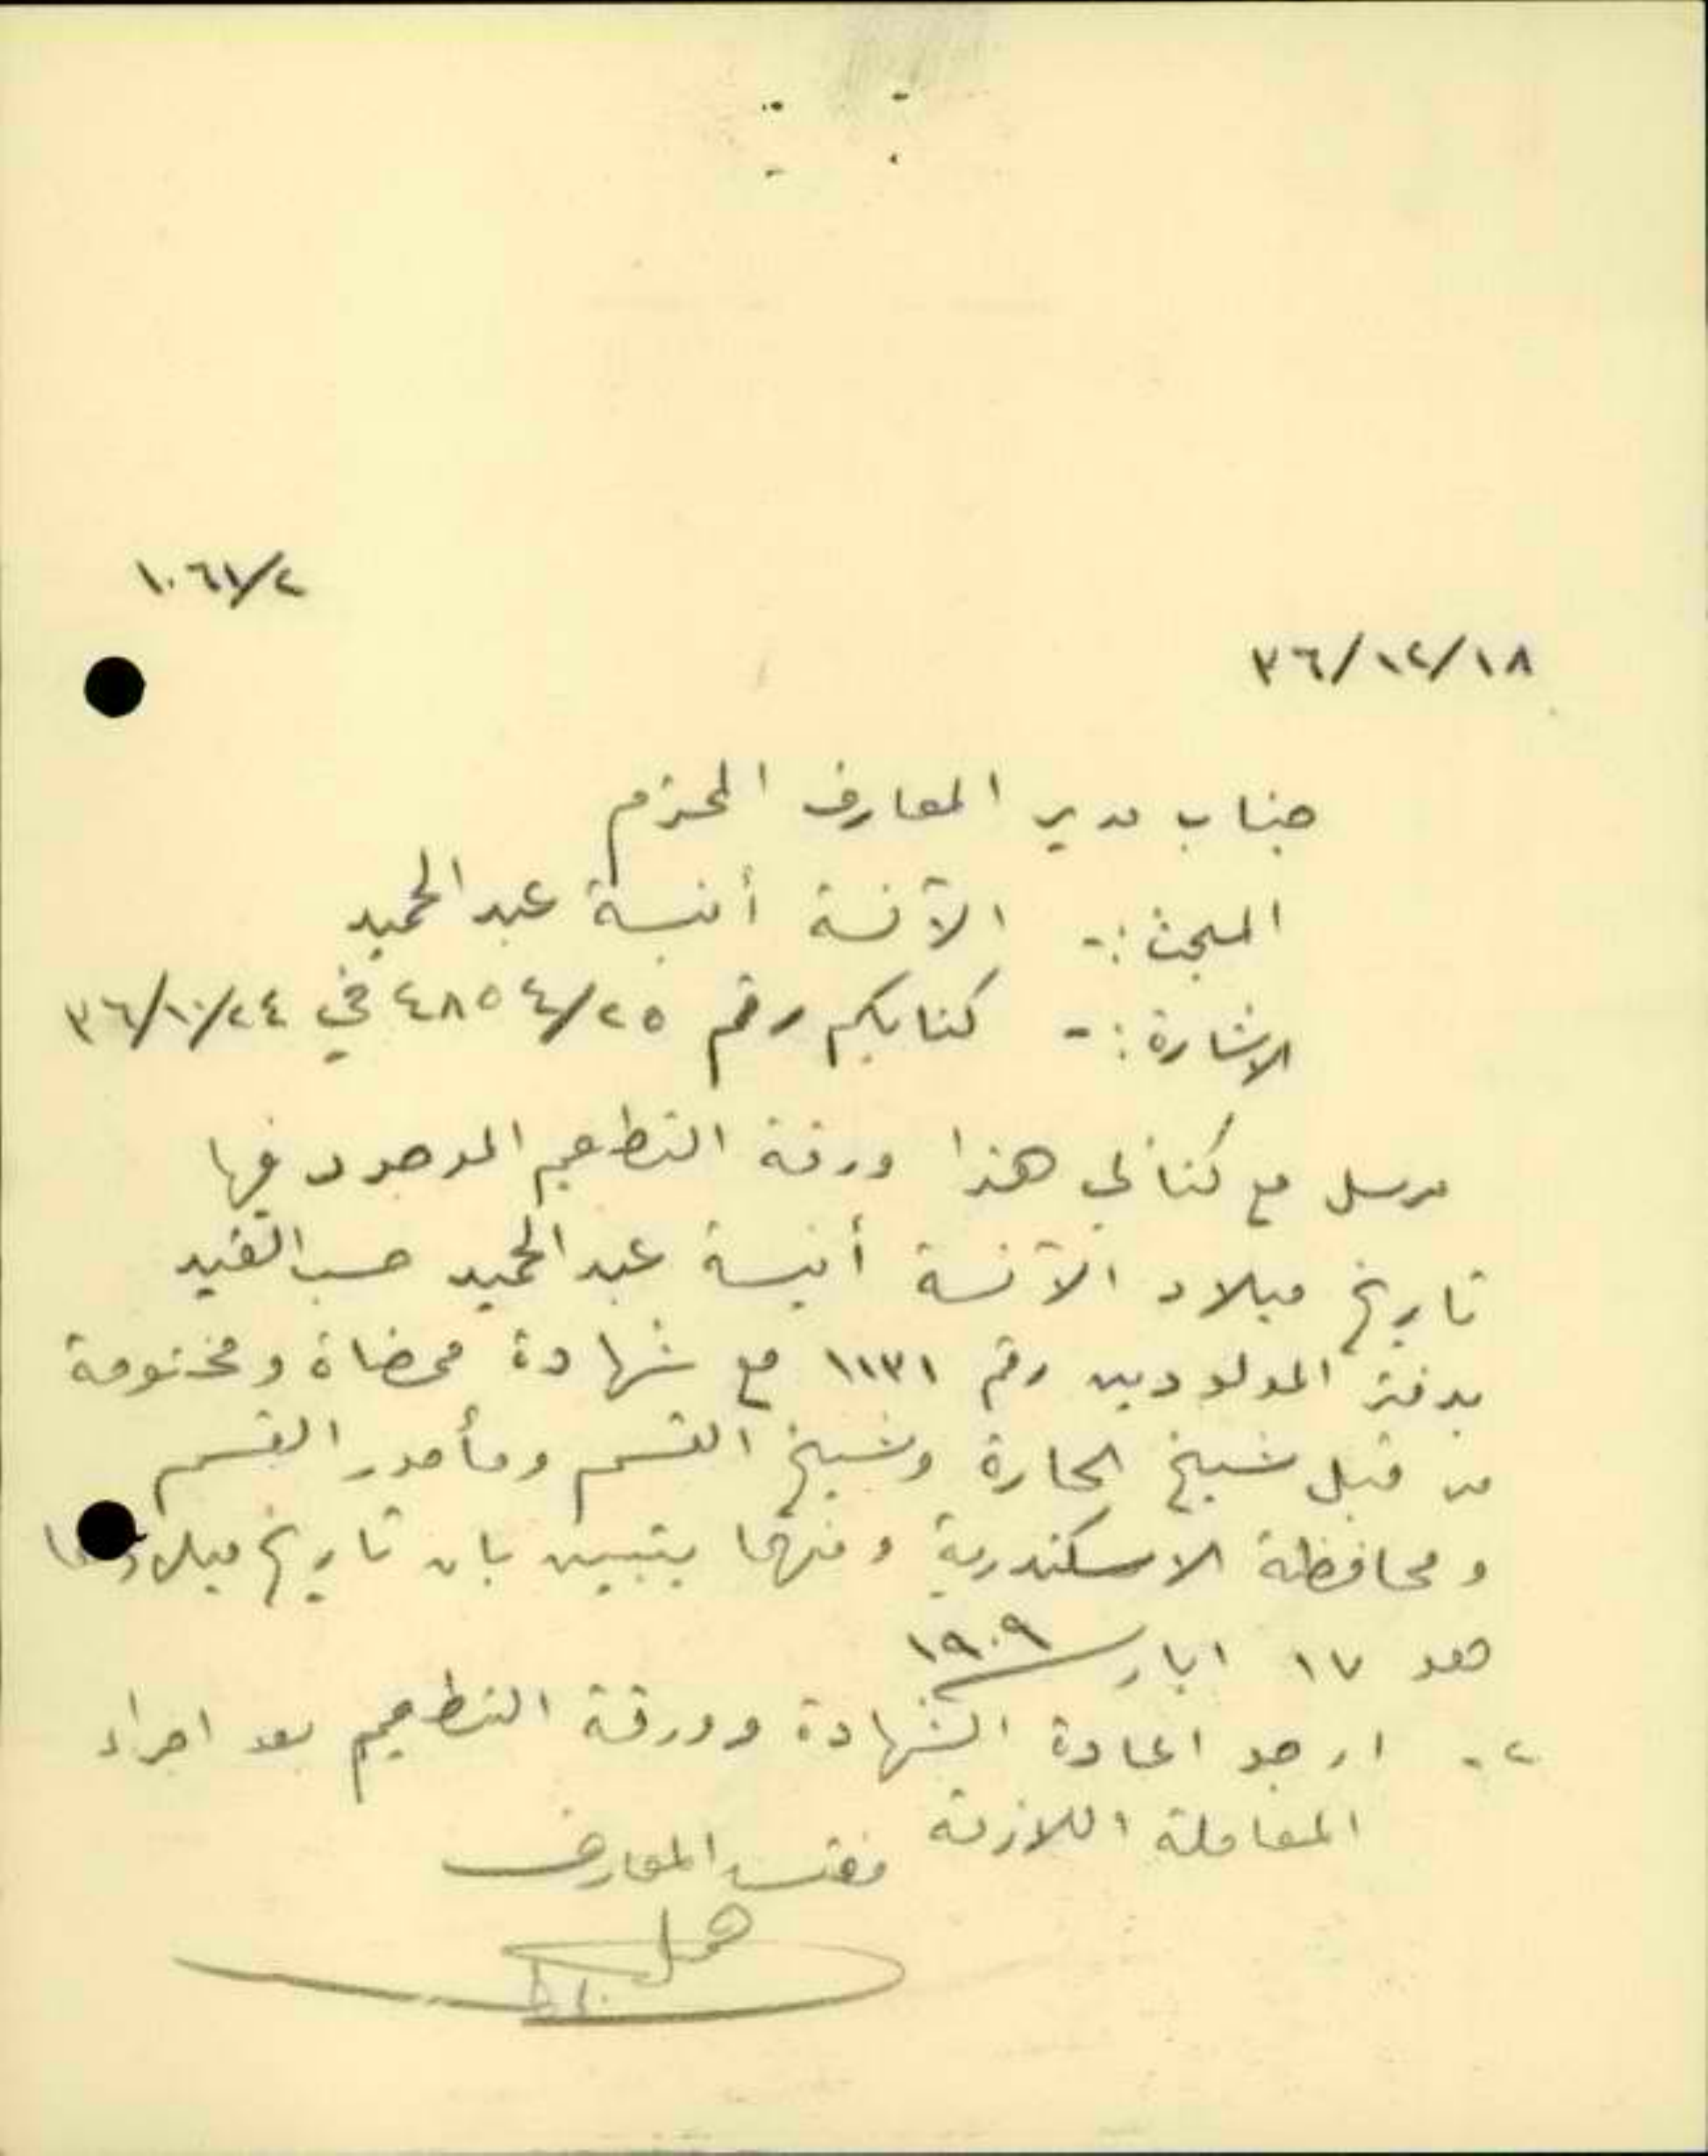 ١٠٦١/٢
٣٦/١٢/١٨
جناب مدير المعارف المحترم
المبحث :- الآنسة أنيسة عبد الحميد
الاشارة :- كتابكم رقم ٤٨٥٤/٢٥ في ٣٦/١٠/٢٤
مرسل مع كتابي هذا ورقة التطعيم الموجود فيها
تاريخ ميلاد الآنسة أنيسة عبد الحميد حسب القيد
بدفتر المولودين رقم ١١٣١ مع شهادة ممضاة ومختومة
من قبل شيخ الحارة وشيخ القسم ومأمور القسم
ومحافظة الاسكندرية ومنها يتبين بان تاريخ ميلادها
هو ١٧ ايار ١٩٠٩
٢- ارجو اعادة الشهادة وورقة التطعيم بعد اجراء
المعاملة اللازمة
مفتش المعارف